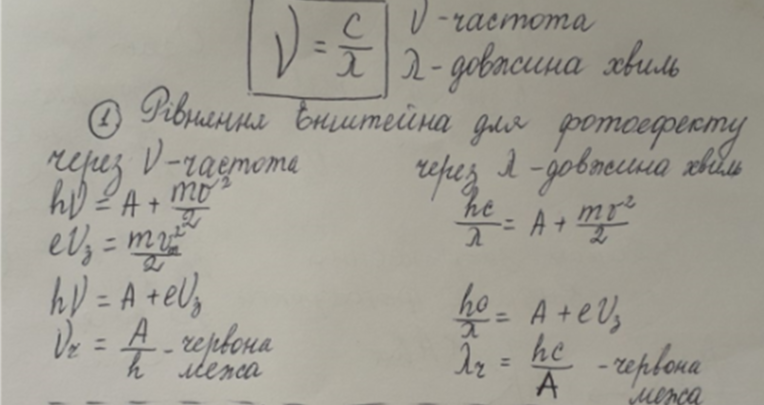 ν = c/λ ν - частота
λ - довжина хвиль
① Рівняння Енштейна для фотоефекту
через ν - частота
hν = A + mv²/2
eU₃ = mv²/2
hν = A + eU₃
νr = A/h - червона межа
через λ - довжина хвиль
hc/λ = A + mv²/2
hc/λ = A + eU₃
λr = hc/A - червона межа